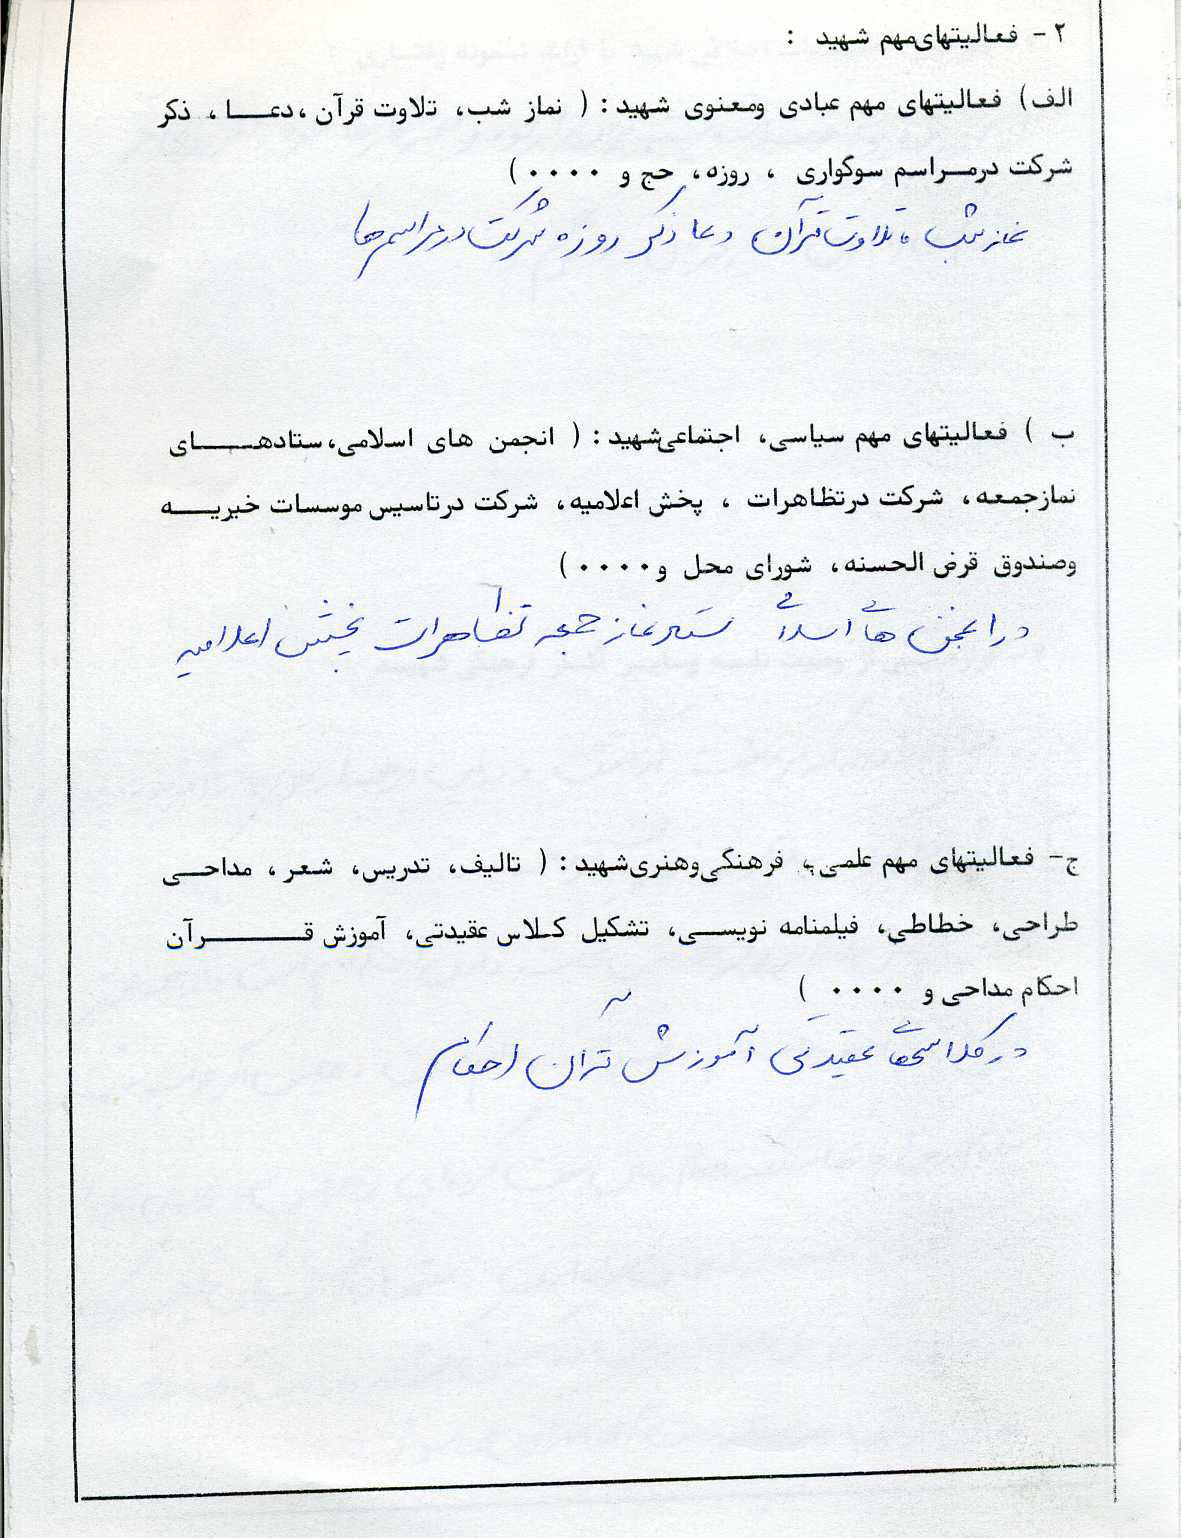 ۲ - فعالیتهای مهم شهید :
الف) فعالیتهای مهم عبادی ومعنوی شهید : ( نماز شب، تلاوت قرآن ،دعـــا ، ذکر
شرکت درمــراسم سوکواری ، روزه، حج و ۰۰۰۰ )
نماز شب ، تلاوت قرآن ، دعا ذکر روزه شرکت در مراسم ها
ب ) فعالیتهای مهم سیاسی، اجتماعی شهید : ( انجمن های اسلامی،ستادهـــــای
نمازجمعه، شرکت درتظاهرات ، پخش اعلامیه، شرکت درتاسیس موسسات خیریـــه
وصندوق قرض الحسنه، شورای محل و۰۰۰۰ )
در انجمن های اسلامی ستاد نماز جمعه تظاهرات پخش اعلامیه
ج- فعالیتهای مهم علمی ، فرهنگی وهنری شهید : ( تالیف، تدریس، شعر ، مداحــی
طراحی، خطاطی، فیلمنامه نویســی، تشکیل کـلاس عقیدتی، آموزش قــــــرآن
احکام مداحی و ۰۰۰۰ )
در کلاسهای عقیدتی آموزش قرآن احکام